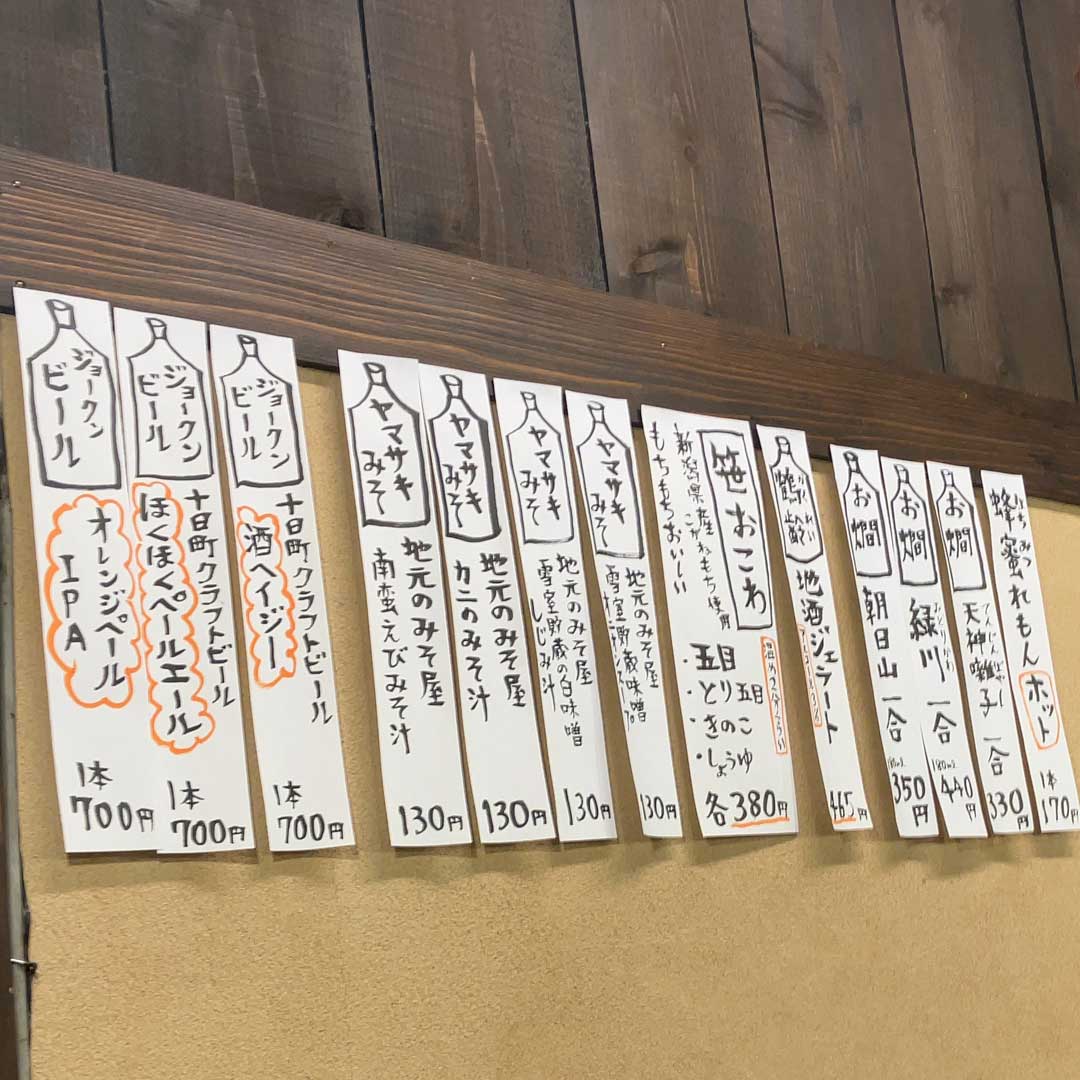 蜂蜜れもん
はちみつ
ホット
1本
170円
お燗
天神囃子 一合
てんじんばやし
330円
お燗
緑川 一合
みどりかわ
180ml
440円
お燗
朝日山 一合
180ml
350円
鶴齢
かくれい
地酒ジェラート
465円
笹おこわ
新潟県産こがねもち使用
もちもちおいしい
・五目
・とり五目
・きのこ
・しょうゆ
各380円
ヤマサキ
みそ
地元のみそ屋
130円
ヤマサキ
みそ
地元のみそ屋
雪室貯蔵の白味噌
しじみ汁
130円
ヤマサキ
みそ
地元のみそ屋
カニのみそ汁
130円
ヤマサキ
みそ
地元のみそ屋
南蛮えびみそ汁
130円
ジョークン
ビール
十日町クラフトビール
酒ヘイジー
1本
700円
ジョークン
ビール
十日町クラフトビール
ほくほくペールエール
1本
700円
ジョークン
ビール
オレンジペール
IPA
1本
700円